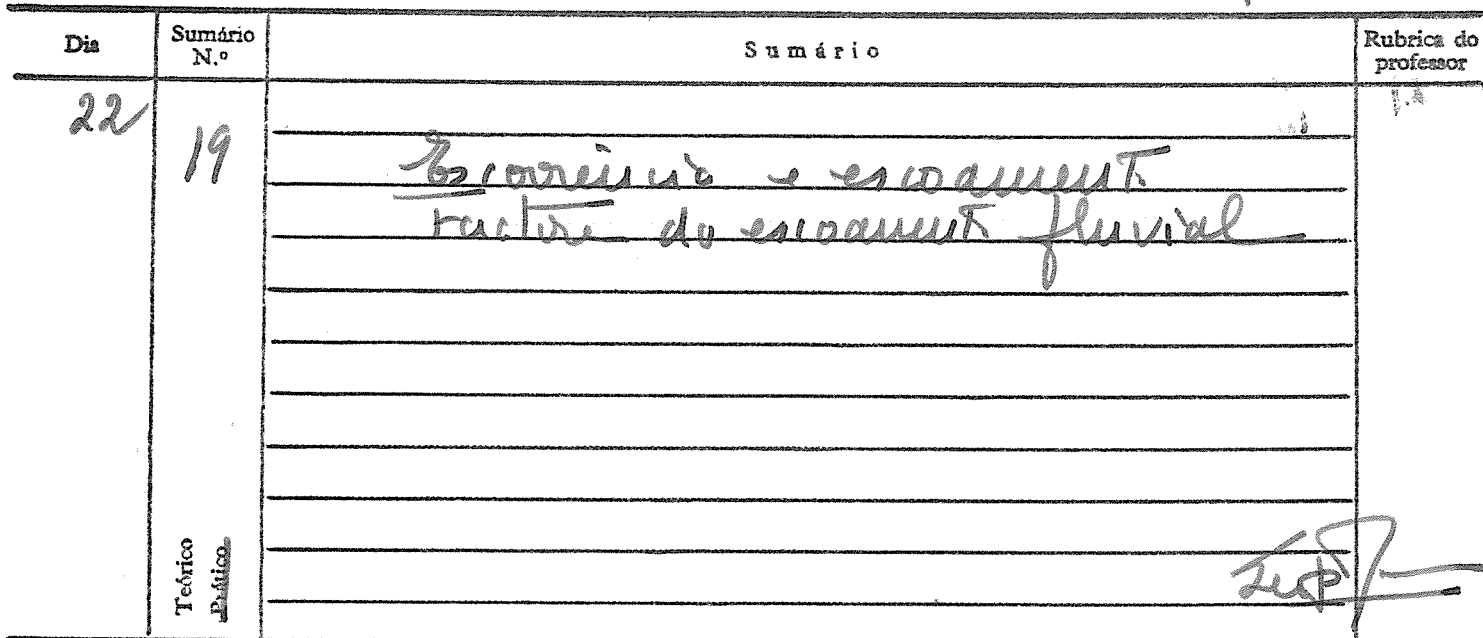 Dia Sumário N.º Sumário Rubrica do professor
22
19
Escorrência e escoament
Factores do escoament fluvial
Teórico
Prático